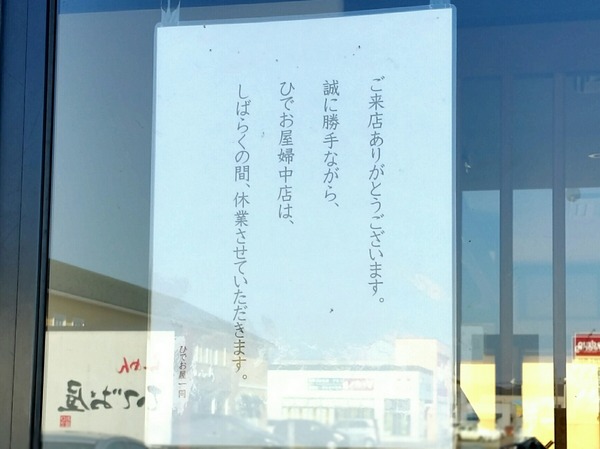 ご来店ありがとうございます。
誠に勝手ながら、
ひでお屋婦中店は、
しばらくの間、休業させていただきます。
ひでお屋一同
でお屋